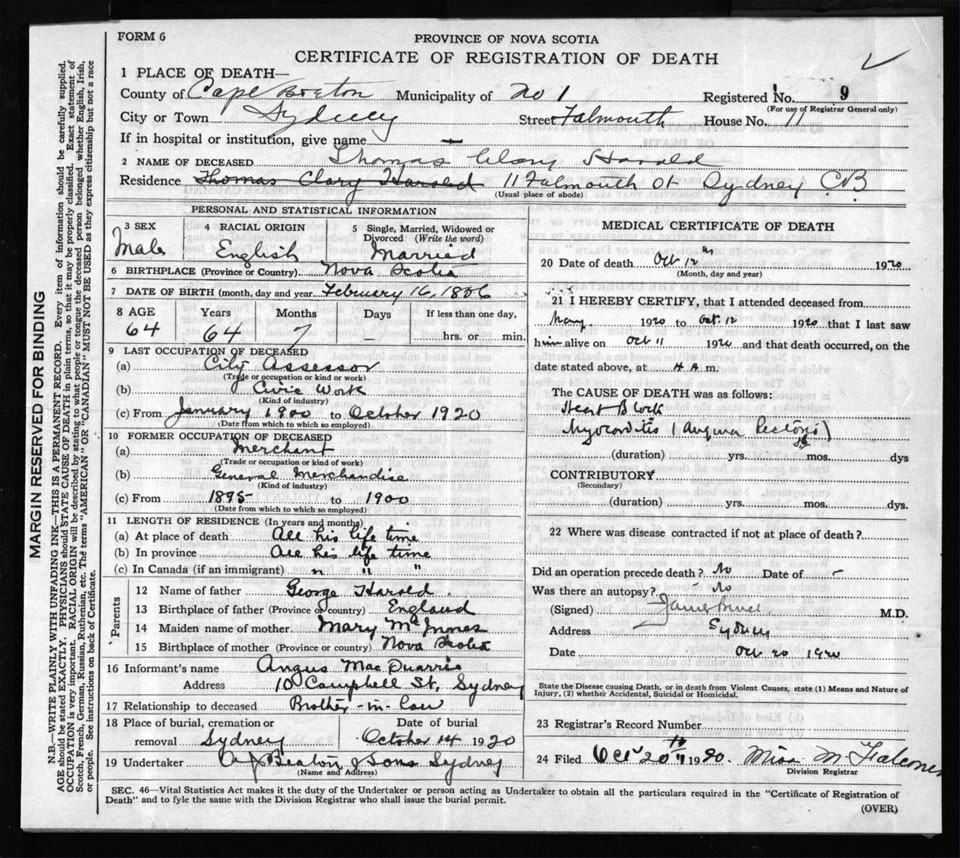 FORM 6
PROVINCE OF NOVA SCOTIA
CERTIFICATE OF REGISTRATION OF DEATH
1 PLACE OF DEATH—
County of Cape Breton Municipality of No 1 Registered No. 9
(For use of Registrar General only)
City or Town Sydney Street Falmouth House No. 11
If in hospital or institution, give name —
2 NAME OF DECEASED Thomas Clary Harold
Residence Thomas Clary Harold 11 Falmouth St Sydney CB
(Usual place of abode)
PERSONAL AND STATISTICAL INFORMATION
3 SEX 4 RACIAL ORIGIN 5 Single, Married, Widowed or
Divorced (Write the word)
Male English Married
6 BIRTHPLACE (Province or Country) Nova Scotia
7 DATE OF BIRTH (month, day and year February 16, 1856
8 AGE Years Months Days If less than one day,
64 64 7 — hrs. or min.
9 LAST OCCUPATION OF DECEASED
(a) City Assessor
(Trade or occupation or kind of work)
(b) Civic Work
(Kind of industry)
(c) From January 1900 to October 1920
(Date from which to which so employed)
10 FORMER OCCUPATION OF DECEASED
(a) Merchant
(Trade or occupation or kind of work)
(b) General Merchandise
(Kind of industry)
(c) From 1895 to 1900
(Date from which to which so employed)
11 LENGTH OF RESIDENCE (In years and months)
(a) At place of death All his life time
(b) In province All his life time
(c) In Canada (if an immigrant) " " "
Parents
12 Name of father George Harold
13 Birthplace of father (Province or country) England
14 Maiden name of mother Mary McInnes
15 Birthplace of mother (Province or country) Nova Scotia
16 Informant's name Angus MacQuarrie
Address 10 Campbell St, Sydney
17 Relationship to deceased Brother-in-law
18 Place of burial, cremation or Date of burial
removal Sydney October 14 1920
19 Undertaker A J Beaton & Sons Sydney
(Name and Address)
MEDICAL CERTIFICATE OF DEATH
20 Date of death Oct 12th 1920
(Month, day and year)
21 I HEREBY CERTIFY, that I attended deceased from
May 1920 to Oct. 12 1920 that I last saw
him alive on Oct 11 1920 and that death occurred, on the
date stated above, at 4 A m.
The CAUSE OF DEATH was as follows:
Heart Block
Myocarditis (Angina Pectoris)
(duration) yrs. mos. dys
CONTRIBUTORY
(Secondary)
(duration) yrs. mos. dys.
22 Where was disease contracted if not at place of death?
Did an operation precede death? No Date of -
Was there an autopsy? - No
(Signed) M.D.
Address Sydney
Date Oct 20 1920
State the Disease causing Death, or in death from Violent Causes, state (1) Means and Nature of
Injury, (2) whether Accidental, Suicidal or Homicidal.
23 Registrar's Record Number
24 Filed Oct 20th 1920. Miss M Falconer
Division Registrar
SEC. 46—Vital Statistics Act makes it the duty of the Undertaker or person acting as Undertaker to obtain all the particulars required in the "Certificate of Registration of
Death" and to fyle the same with the Division Registrar who shall issue the burial permit.
(OVER)
MARGIN RESERVED FOR BINDING
N.B.—WRITE PLAINLY WITH UNFADING INK—THIS IS A PERMANENT RECORD. Every item of information should be carefully supplied.
AGE should be stated EXACTLY. PHYSICIANS should STATE CAUSE OF DEATH in plain terms, so that it may be properly classified. Exact statement of
OCCUPATION is very important. RACIAL ORIGIN will be described by stating to what people or tongue the deceased person belonged whether English, Irish,
Scotch, French, German, Russian, Ruthenian, etc. The terms "AMERICAN" OR "CANADIAN" MUST NOT BE USED as they express citizenship but not a race
or people. See instructions on back of Certificate.